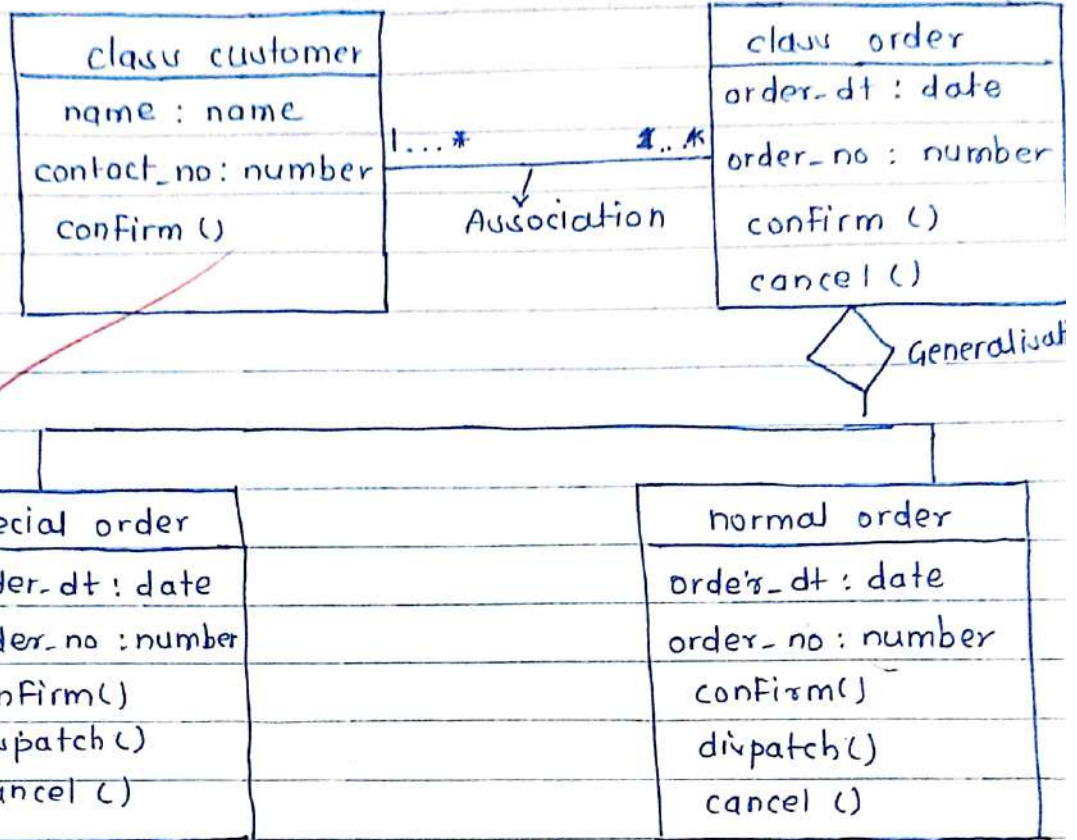 class customer
name : name
contact_no : number
confirm ()
1...*
1..*
Association
class order
order_dt : date
order_no : number
confirm ()
cancel ()
Generalisat
ecial order
der_dt : date
der_no : number
nfirm()
spatch ()
ancel ()
normal order
order_dt : date
order_no : number
confirm()
dispatch()
cancel ()